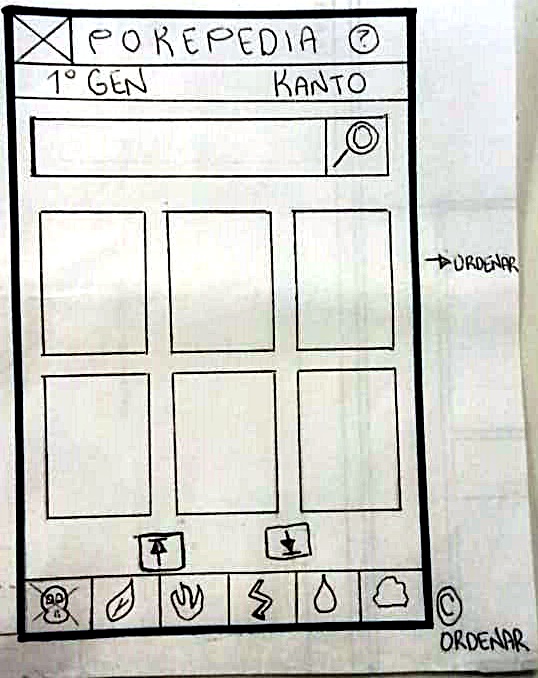 POKEPEDIA ?
1º GEN KANTO
URDENAR
C
ORDENAR